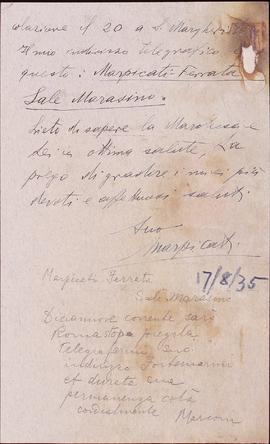 colazione il 20 a S. Margherita
Il mio indirizzo telegrafico è
questo: Marpicati Ferrata
Sale Marasino.
Lieto di sapere la Marchesa e
Lei in ottima salute, La
prego di gradire i miei più
devoti e affettuosi saluti.
Suo
Marpicati
17/8/35
Marpicati Ferrata
Sale Marasino
Diciannove corrente sarò
Roma stop pregola
telegrafarmi suo
indirizzo
et durata sua
permanenza costà
cordialmente Marconi